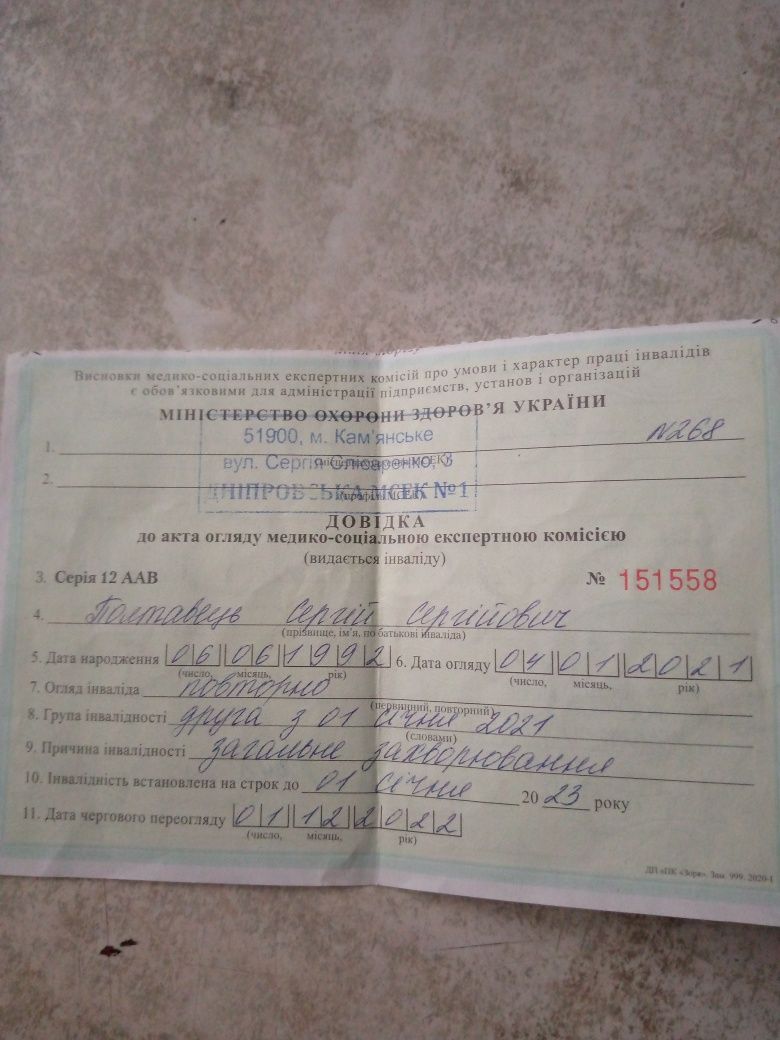 Висновки медико-соціальних експертних комісій про умови і характер праці інвалідів
є обов'язковими для адміністрації підприємств, установ і організацій
МІНІСТЕРСТВО ОХОРОНИ ЗДОРОВ'Я УКРАЇНИ
51900, м. Кам'янське
1. N268
вул. Сергія Слісаренко, 3
2.
ДНІПРОВСЬКА МСЕК №1
ДОВІДКА
до акта огляду медико-соціальною експертною комісією
(видається інваліду)
3. Серія 12 ААВ № 151558
4. Полтавець Сергій Сергійович
(прізвище, ім'я, по батькові інваліда)
5. Дата народження 06 06 1992 6. Дата огляду 04 01 2021
(число, місяць, рік) (число, місяць, рік)
7. Огляд інваліда повторно
(первинний, повторний)
8. Група інвалідності друга з 01 січня 2021
(словами)
9. Причина інвалідності загальне захворювання
10. Інвалідність встановлена на строк до 01 січня 2023 року
11. Дата чергового переогляду 01 12 2022
(число, місяць, рік)
ДП «ПК «Зоря». Зам. 999. 2020-1